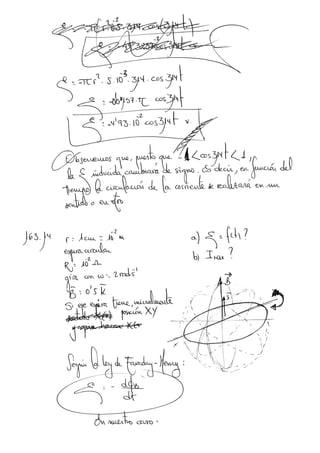 E = -πr². 5.10⁻³. 314. cos 314t
E = -4'93.10⁻² cos 314t v.
Observemos que, puesto que -1 < cos 314t < 1,
la E inducida cambiará de signo. Es decir, en función del
tiempo la circulación de la corriente se realizará en un
sentido o en otro
163. 14 r = 1cm = 10⁻² m a) E = f(t)?
espira circular b) I max?
R = 10⁻² Ω
gira con ω = 2 rad s⁻¹
B = 0'5 k B
Si espira tiene, inicialmente
posición XY
Según la ley de Faraday-Henry:
E = - dΦm
dt
En nuestro caso: